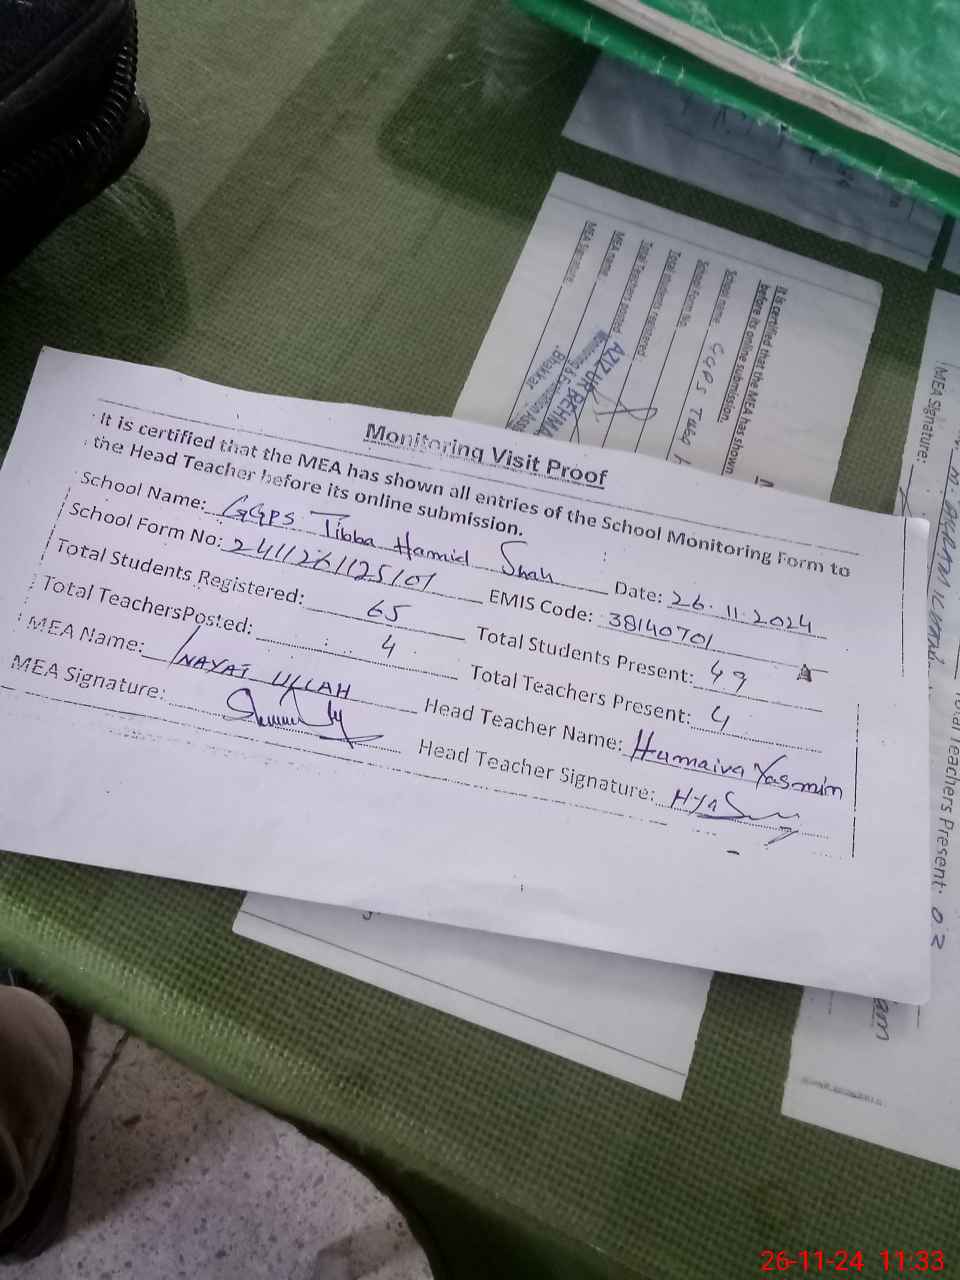 Monitoring Visit Proof
It is certified that the MEA has shown all entries of the School Monitoring Form to
the Head Teacher before its online submission.
School Name: GGPS Tibba Hamid Shah Date: 26.11.2024
School Form No: 2411261125101 EMIS Code: 38140701
Total Students Registered: 65 Total Students Present: 49
Total TeachersPosted: 4 Total Teachers Present: 4
MEA Name: INAYAT ULLAH Head Teacher Name: Humaiva Yasmim
MEA Signature: Head Teacher Signature:
It is certified that the MEA has shown
before its online submission.
School name GGPS
School Form No
Total Students registered
Total Teachers posted
MEA name:
MEA Signature:
AZIZ UR REHMA
Monitoring & Evaluation Assi
Bhakkar
MEA Signature:
Total Teachers Present: 02
26-11-24 11:33